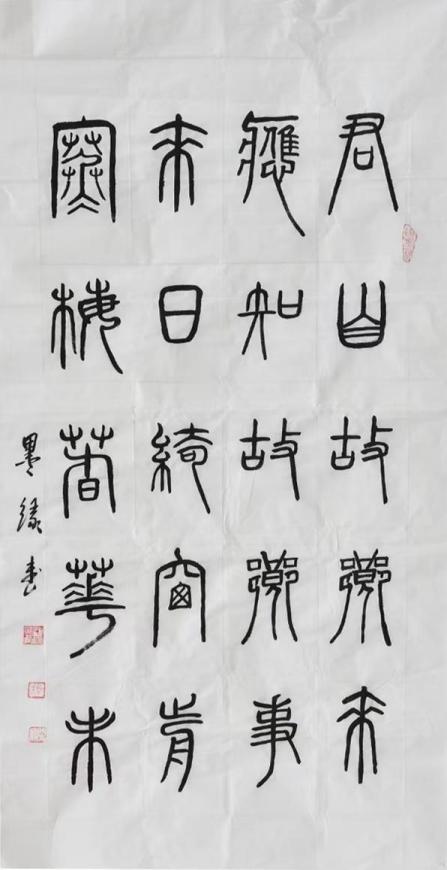 君自故鄉來
應知故鄉事
來日綺窗前
寒梅著華未
墨缘书